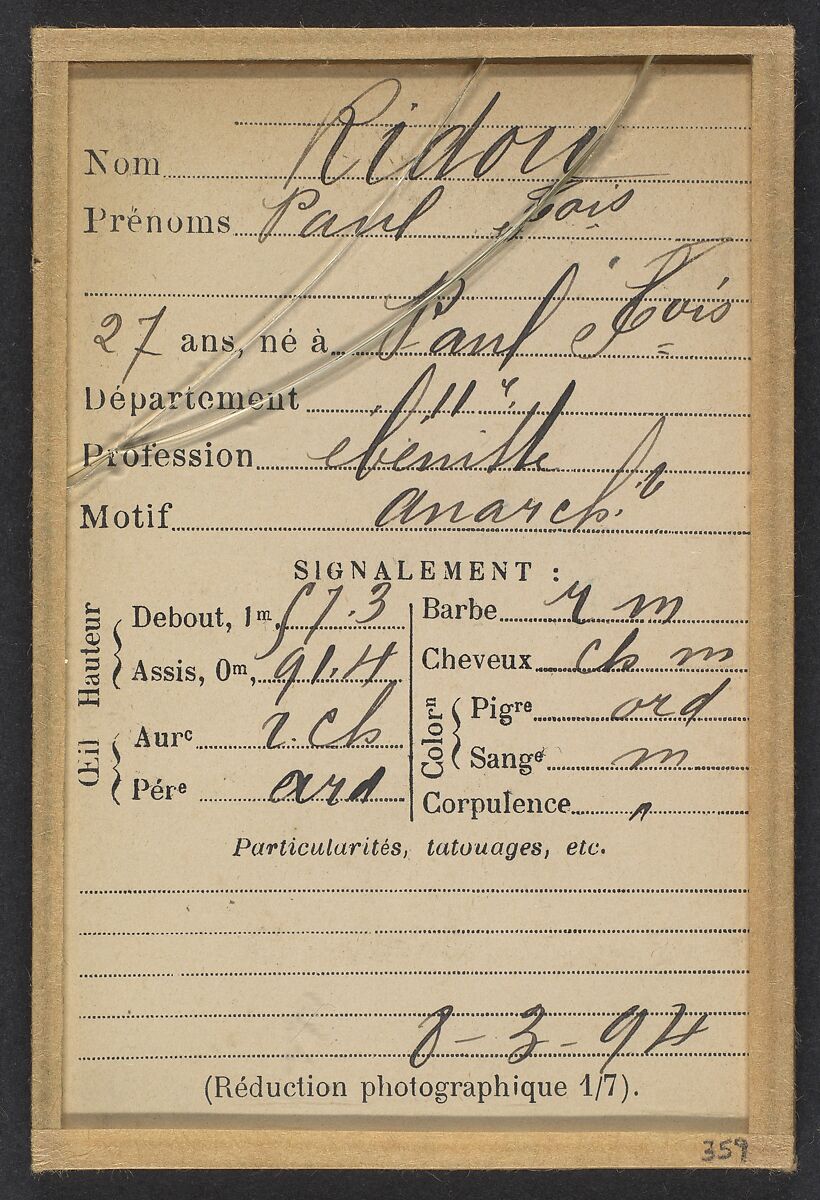 Nom Ridou
Prénoms Paul fois
27 ans, né à Paul fois
Département 11e
Profession ébéniste
Motif anarch.te
SIGNALEMENT :
Hauteur
Debout, 1m, 57.3
Assis, 0m, 91.4
Œil
Aure r. ch
Pére ard
Barbe r m
Cheveux ch m
Colorn
Pigre ord
Sange m
Corpulence "
Particularités, tatouages, etc.
8-3-94
(Réduction photographique 1/7).
359